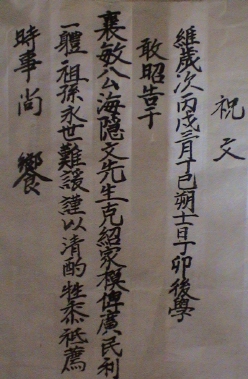 祝文
維歲次丙戌三月丁巳朔十一日丁卯後學
敢昭告于
襄敏公海隱文先生克紹家模俾廣民利
一軆祖孫永世難諼謹以清酌牲黍祗薦
時事尚 饗